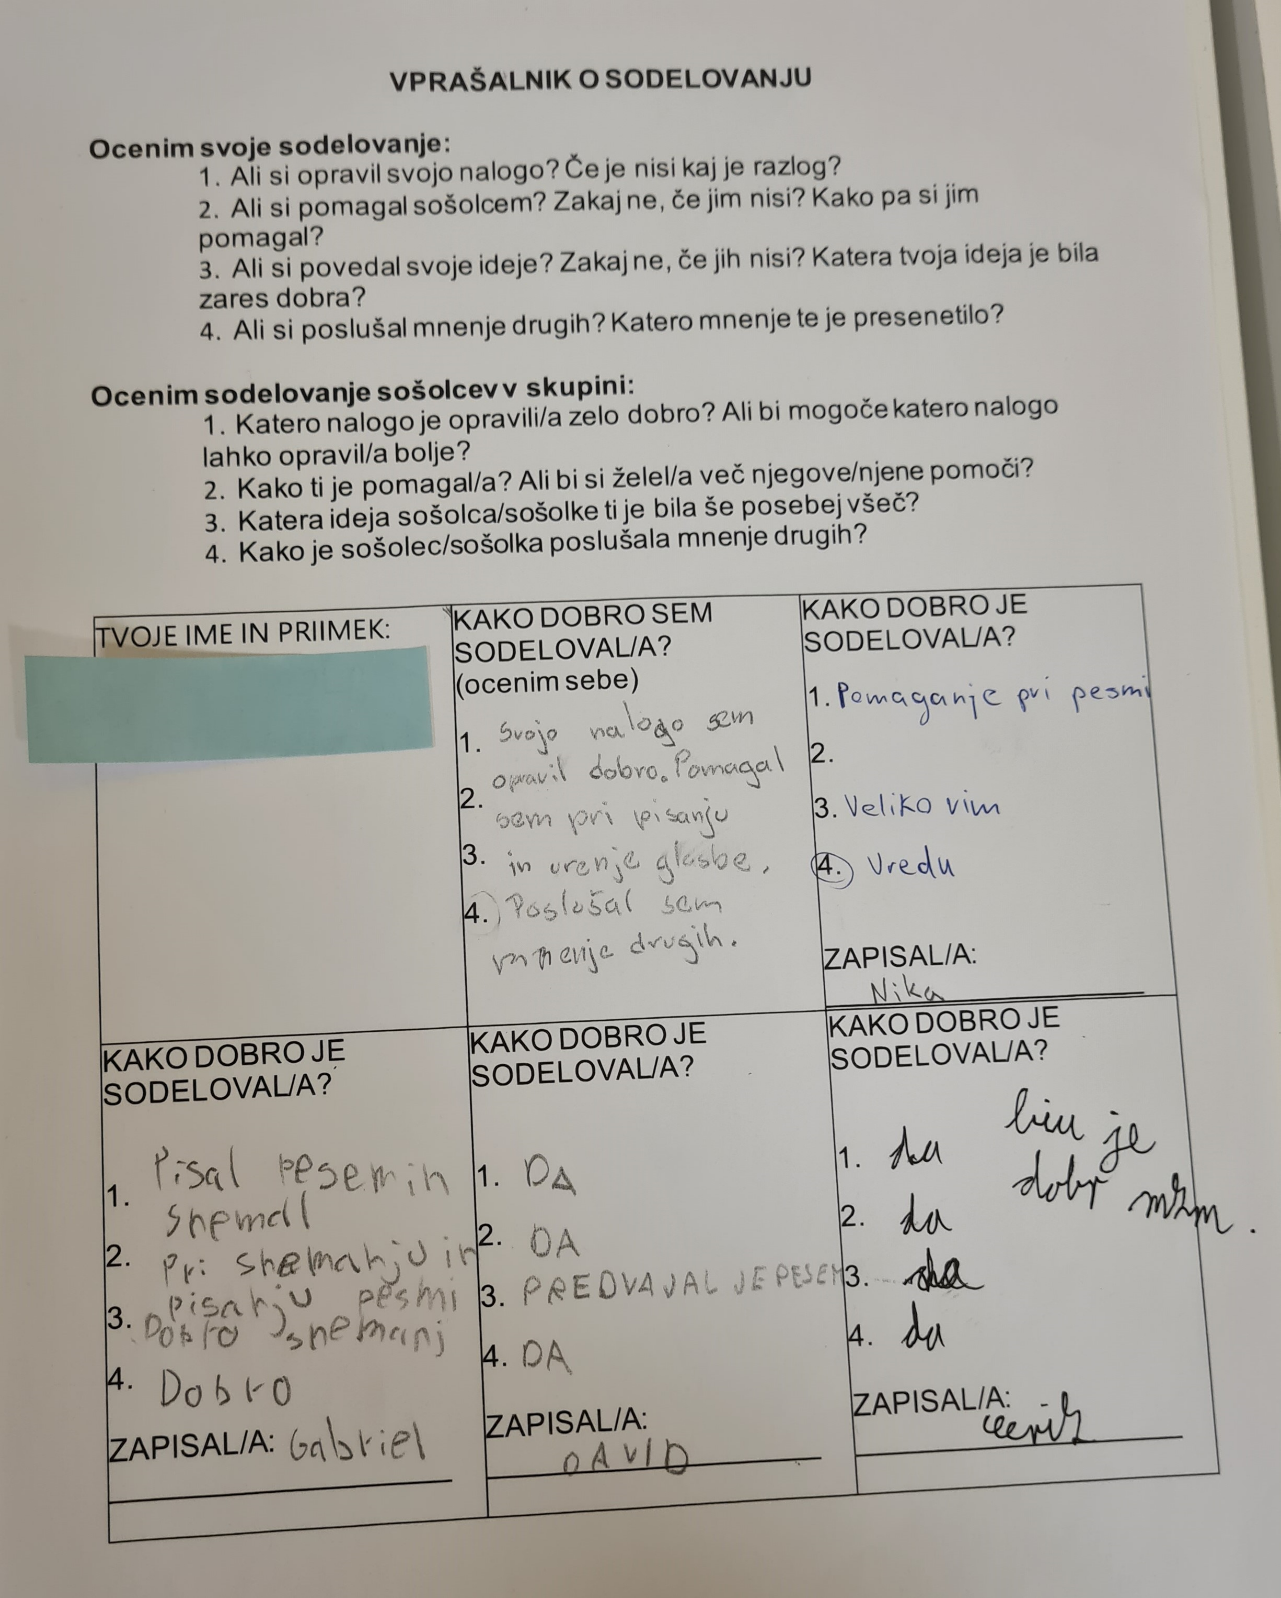 VPRAŠALNIK O SODELOVANJU
Ocenim svoje sodelovanje:
1. Ali si opravil svojo nalogo? Če je nisi kaj je razlog?
2. Ali si pomagal sošolcem? Zakaj ne, če jim nisi? Kako pa si jim
pomagal?
3. Ali si povedal svoje ideje? Zakaj ne, če jih nisi? Katera tvoja ideja je bila
zares dobra?
4. Ali si poslušal mnenje drugih? Katero mnenje te je presenetilo?
Ocenim sodelovanje sošolcev v skupini:
1. Katero nalogo je opravili/a zelo dobro? Ali bi mogoče katero nalogo
lahko opravil/a bolje?
2. Kako ti je pomagal/a? Ali bi si želel/a več njegove/njene pomoči?
3. Katera ideja sošolca/sošolke ti je bila še posebej všeč?
4. Kako je sošolec/sošolka poslušala mnenje drugih?
TVOJE IME IN PRIIMEK:
KAKO DOBRO SEM
SODELOVAL/A?
(ocenim sebe)
1. Svojo nalogo sem
opravil dobro. Pomagal
2. sem pri pisanju
3. in urenje glasbe.
4. Poslušal sem
mnenje drugih.
KAKO DOBRO JE
SODELOVAL/A?
1. Pomaganje pri pesmi
2.
3. Veliko vim
4. Vredu
ZAPISAL/A:
Nika
KAKO DOBRO JE
SODELOVAL/A?
1. Pisal pesem in
snemal
2. Pri snemanju in
pisanju pesmi
3. Dobro snemanj
4. Dobro
ZAPISAL/A: Gabriel
KAKO DOBRO JE
SODELOVAL/A?
1. DA
2. DA
3. PREDVAJAL JE PESEM
4. DA
ZAPISAL/A:
DAVID
KAKO DOBRO JE
SODELOVAL/A?
1. da
je
dobr
2. da
3. da
4. da
ZAPISAL/A: